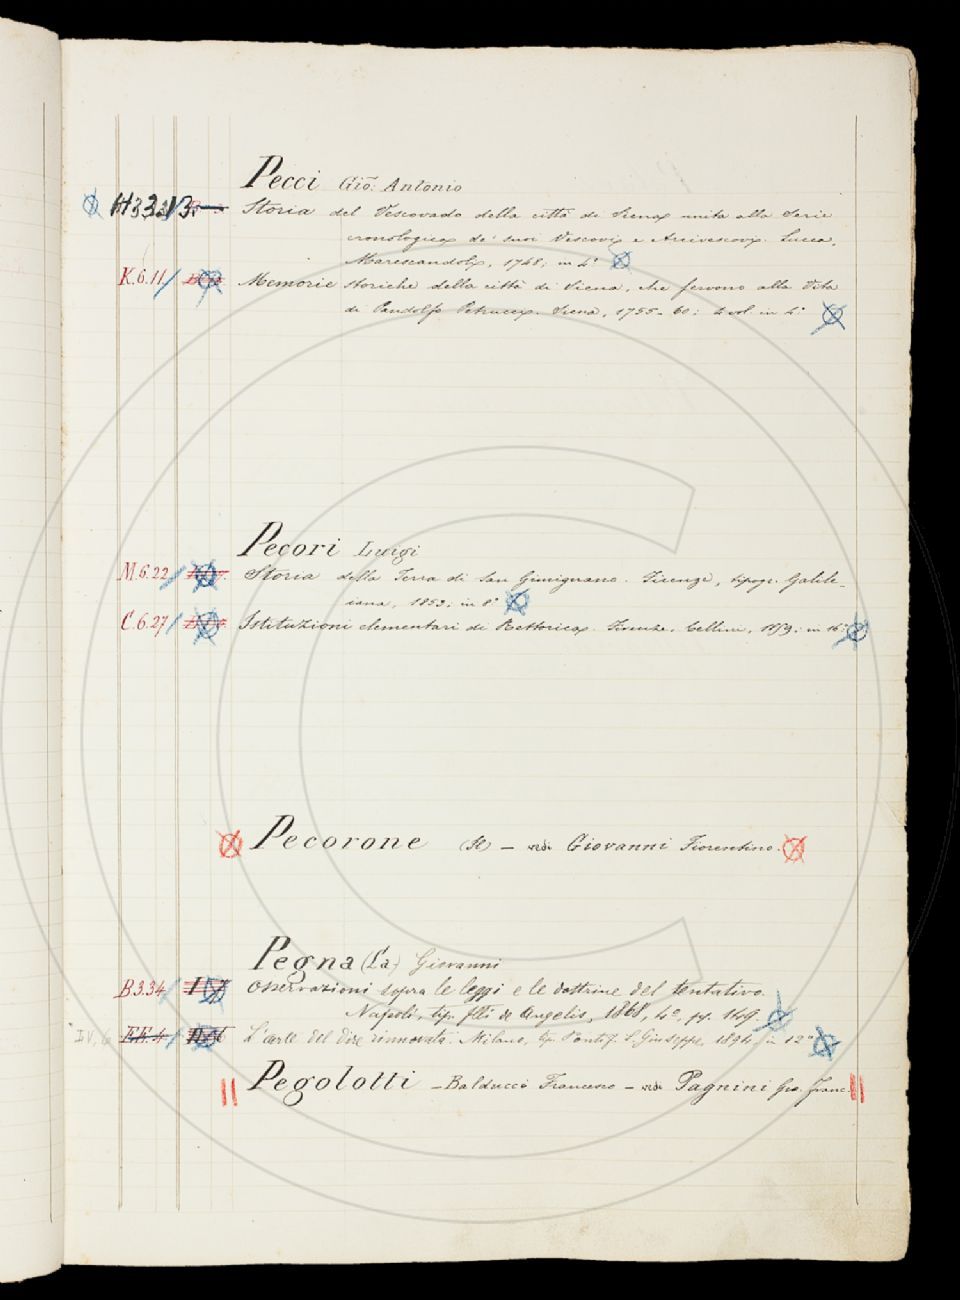 Pecci Gio: Antonio
Storia del Vescovado della città di Siena unita alla Serie
cronologica de' suoi Vescovi e Arcivescovi. Lucca,
Marescandoli, 1748; in 4°
K.6.11 Memorie storiche della città di Siena, che servono alla Vita
di Pandolfo Petrucci. Siena, 1755-60; 4 vol. in 4°
Pecori Luigi
M.6.22 Storia della Terra di San Gimignano. Firenze, tipogr. Galile-
iana, 1853; in 8°
C.6.27 Istituzioni elementari di Rettorica. Firenze, Cellini, 1859; in 16°
Pecorone (Il) — vedi Giovanni Fiorentino.
Pegna (La) Giovanni
B.3.34 Osservazioni sopra le leggi e le dottrine del tentativo.
Napoli, tip. flli de Angelis, 1868, 4°, pp. 149.
EE.4 L'arte del dire rinnovata. Milano, tip. Pontif. S. Giuseppe, 1894, in 12°
Pegolotti — Balducci Francesco — vedi Pagnini Gio. Franc.